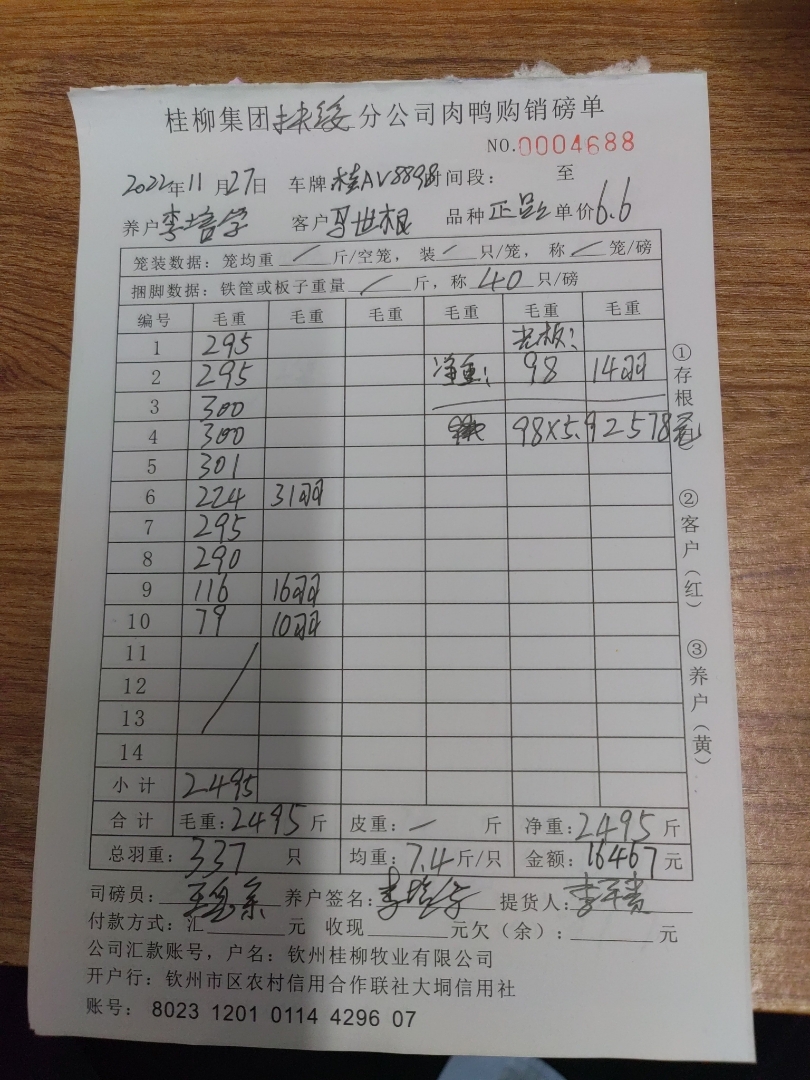 桂柳集团扶绥分公司肉鸭购销磅单
NO.0004688
2022年11月27日 车牌:桂AV8898时间段: 至
养户李培学 客户马世根 品种 正品 单价6.6
笼装数据:笼均重 / 斤/空笼, 装 / 只/笼, 称 / 笼/磅
捆脚数据:铁筐或板子重量 / 斤,称 40 只/磅
编号 毛重 毛重 毛重 毛重 毛重 毛重
1 295 老板:
2 295 净重: 98 14羽
3 300
4 300 98×5.9 2578元
5 301
6 224 31羽
7 295
8 290
9 116 16羽
10 79 10羽
11
12
13
14
小计 2495
合计 毛重:2495斤 皮重: — 斤 净重:2495斤
总羽重:337 只 均重:7.4斤/只 金额:16467元
司磅员: 养户签名:李培学 提货人:李平贵
付款方式:汇 元 收现 元欠(余): 元
公司汇款账号,户名:钦州桂柳牧业有限公司
开户行:钦州市区农村信用合作联社大垌信用社
账号: 8023 1201 0114 4296 07
①存根(白) ②客户(红) ③养户(黄)